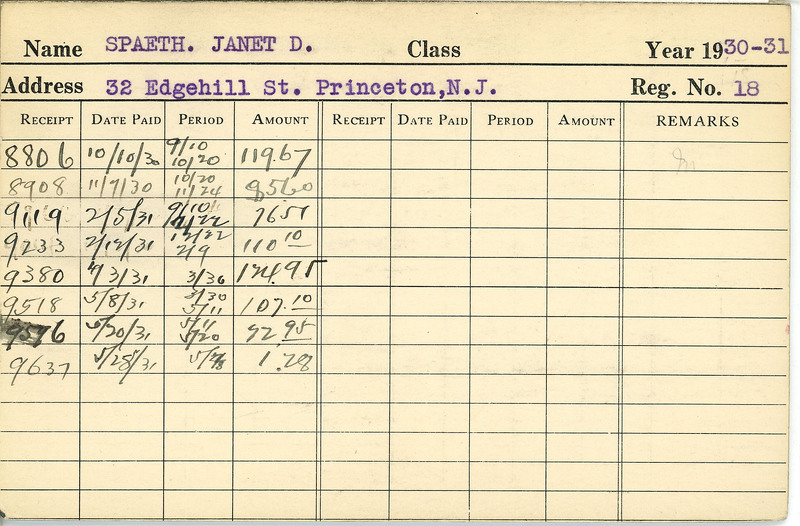 Name SPAETH. JANET D. Class Year 1930-31
Address 32 Edgehill St. Princeton,N.J. Reg. No. 18
RECEIPT DATE PAID PERIOD AMOUNT RECEIPT DATE PAID PERIOD AMOUNT REMARKS
8806 10/10/30 9/10 10/20 119.67
8908 11/7/30 10/20 11/24 8560
9119 2/5/31 9/10 7651
9233 2/12/31 12/22 2/9 110 10
9380 4/3/31 3/30 124.95
9518 5/8/31 3/30 5/11 107.10
9576 5/20/31 5/11 5/20 92 95
9637 5/28/31 5/28 1.28